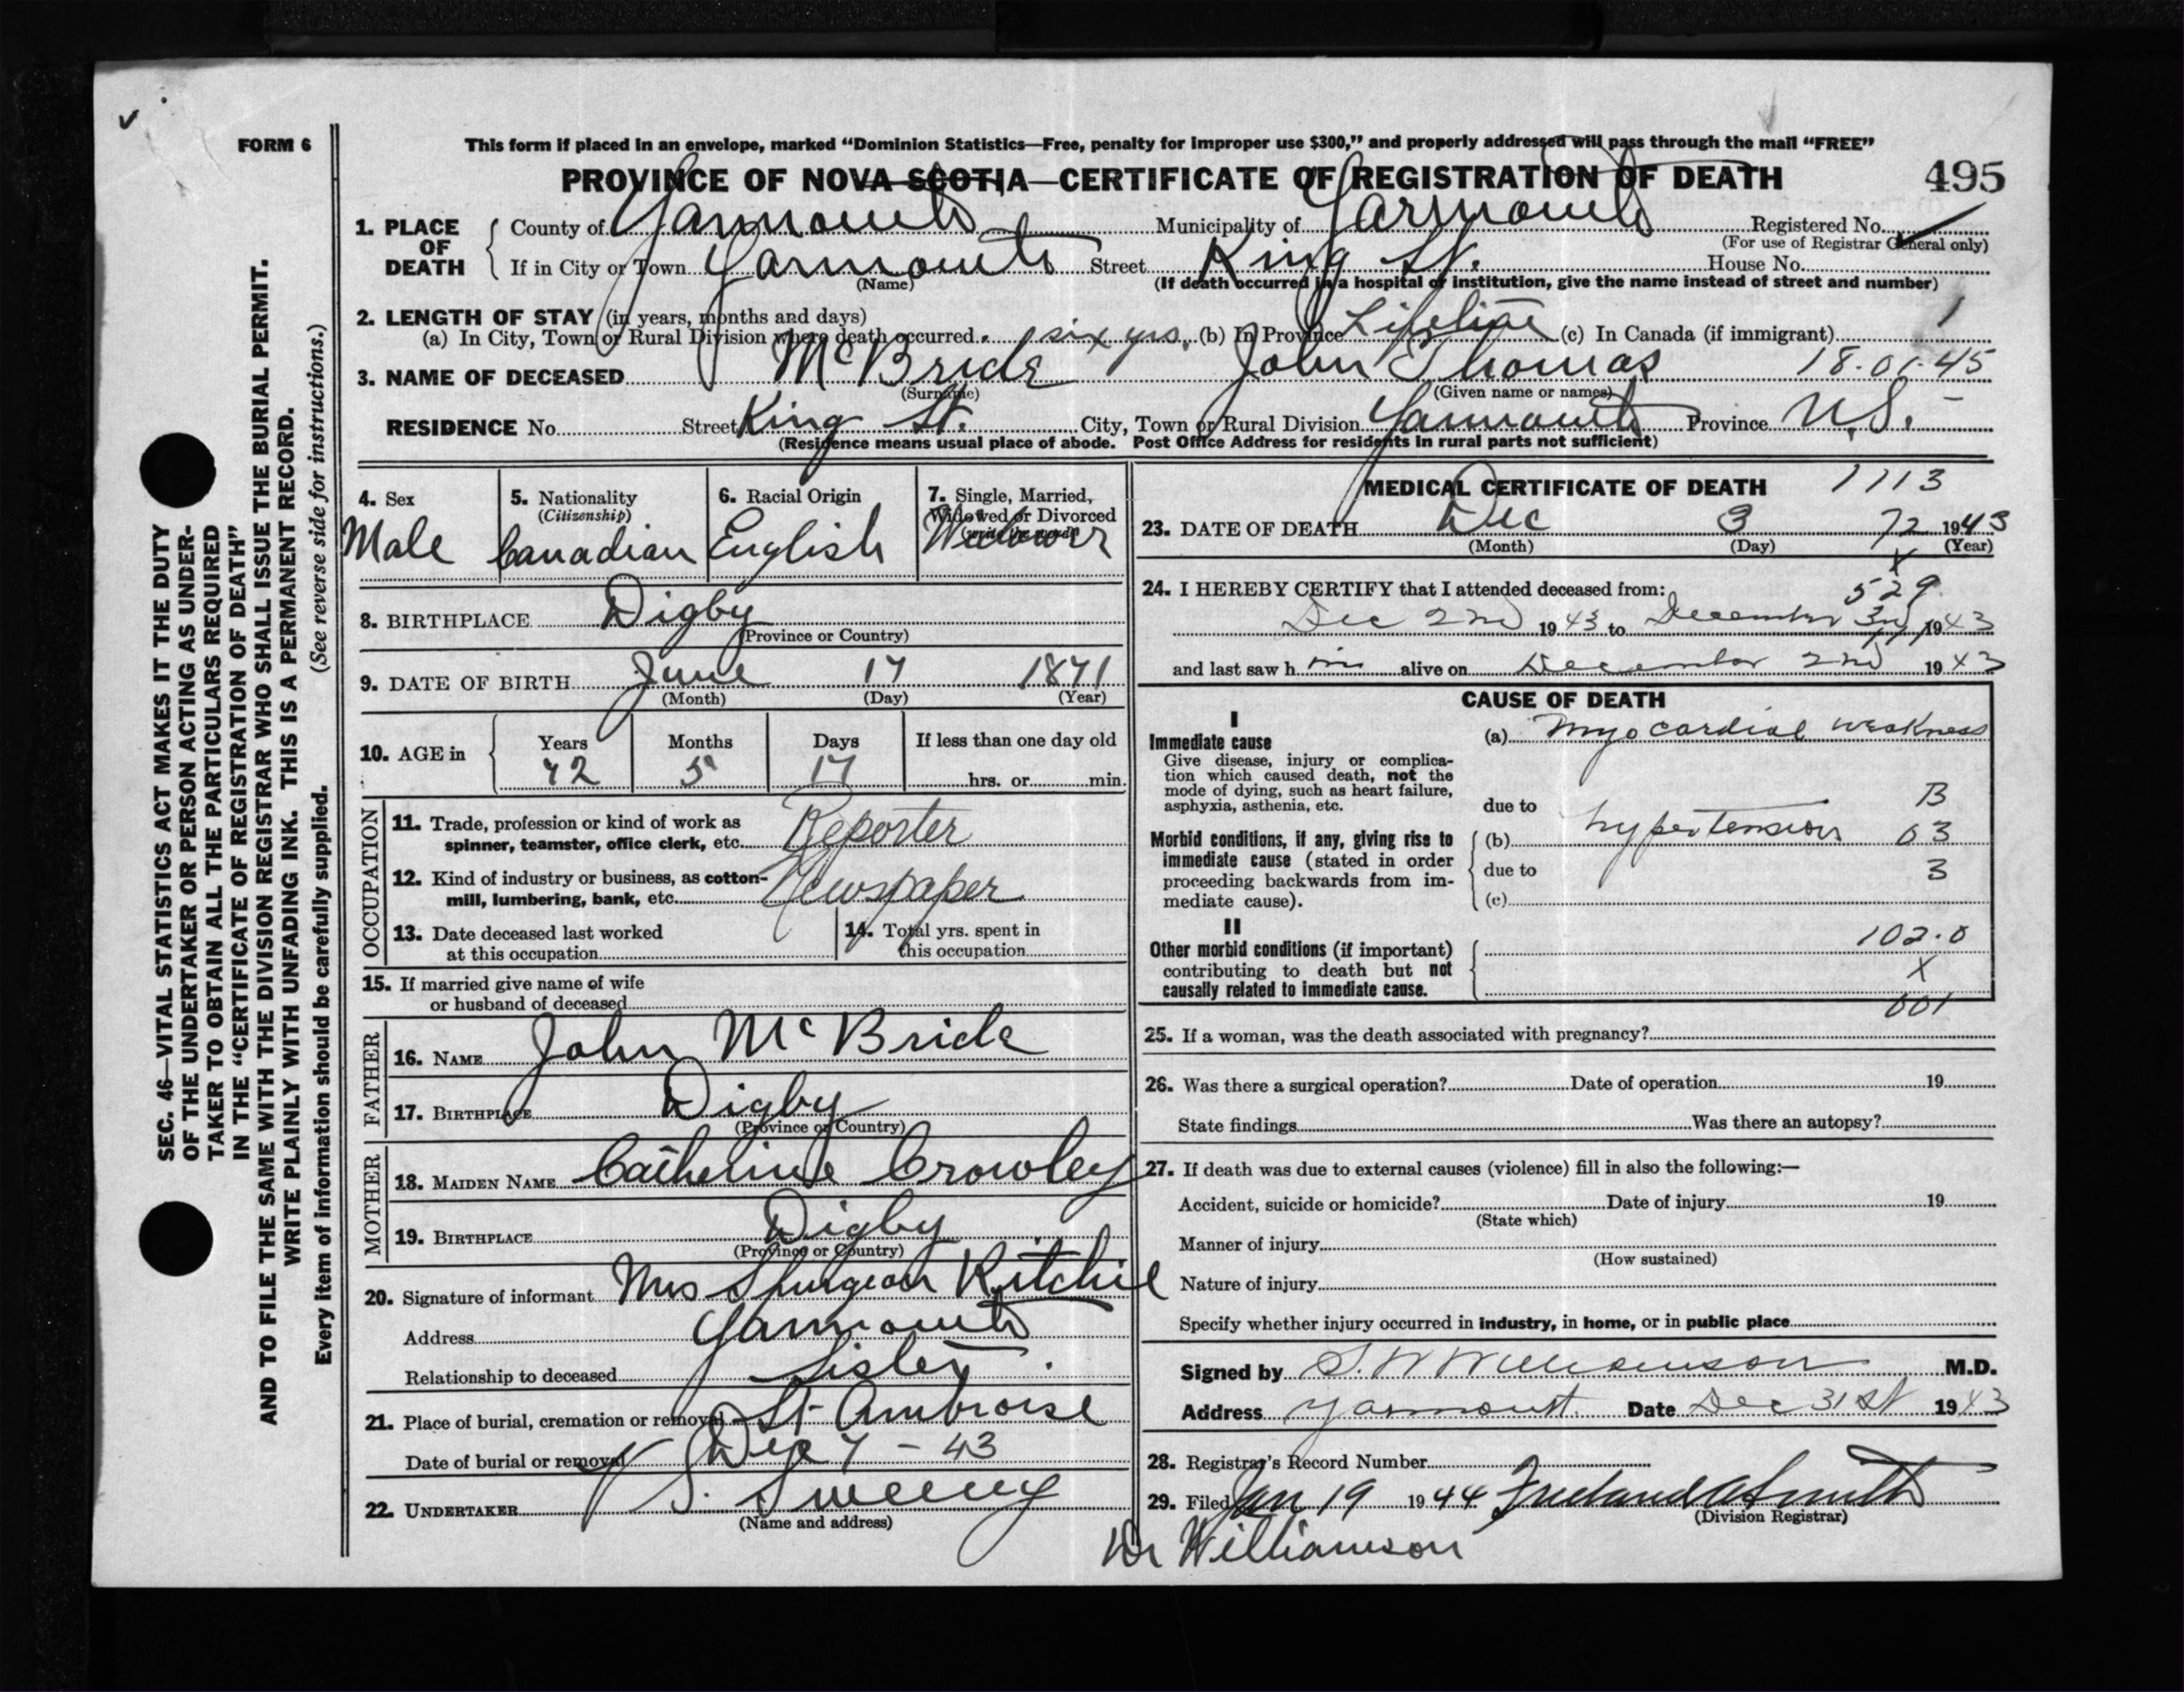 FORM 6
This form if placed in an envelope, marked “Dominion Statistics—Free, penalty for improper use $300,” and properly addressed will pass through the mail “FREE”
PROVINCE OF NOVA SCOTIA—CERTIFICATE OF REGISTRATION OF DEATH 495
1. PLACE OF DEATH County of Yarmouth Municipality of Yarmouth Registered No.
(For use of Registrar General only)
If in City or Town Yarmouth Street King St. House No.
(Name) (If death occurred in a hospital or institution, give the name instead of street and number)
2. LENGTH OF STAY (in years, months and days)
(a) In City, Town or Rural Division where death occurred six yrs. (b) In Province Lifetime (c) In Canada (if immigrant) 1
3. NAME OF DECEASED McBride John Thomas 18.01.45
(Surname) (Given name or names)
RESIDENCE No. Street King St. City, Town or Rural Division Yarmouth Province N.S.
(Residence means usual place of abode. Post Office Address for residents in rural parts not sufficient)
SEC. 46—VITAL STATISTICS ACT MAKES IT THE DUTY
OF THE UNDERTAKER OR PERSON ACTING AS UNDER-
TAKER TO OBTAIN ALL THE PARTICULARS REQUIRED
IN THE “CERTIFICATE OF REGISTRATION OF DEATH”
AND TO FILE THE SAME WITH THE DIVISION REGISTRAR WHO SHALL ISSUE THE BURIAL PERMIT.
WRITE PLAINLY WITH UNFADING INK. THIS IS A PERMANENT RECORD.
Every item of information should be carefully supplied. (See reverse side for instructions.)
4. Sex
Male
5. Nationality
(Citizenship)
Canadian
6. Racial Origin
English
7. Single, Married,
Widowed or Divorced
(write the word)
Widower
8. BIRTHPLACE Digby
(Province or Country)
9. DATE OF BIRTH June 17 1871
(Month) (Day) (Year)
10. AGE in Years Months Days If less than one day old
72 5 17 hrs. or min.
OCCUPATION
11. Trade, profession or kind of work as
spinner, teamster, office clerk, etc. Reporter
12. Kind of industry or business, as cotton-
mill, lumbering, bank, etc. Newspaper
13. Date deceased last worked
at this occupation
14. Total yrs. spent in
this occupation
15. If married give name of wife
or husband of deceased
FATHER
16. NAME John McBride
17. BIRTHPLACE Digby
(Province or Country)
MOTHER
18. MAIDEN NAME Catherine Crowley
19. BIRTHPLACE Digby
(Province or Country)
20. Signature of informant Mrs Spurgeon Ritchie
Address Yarmouth
Relationship to deceased Sister.
21. Place of burial, cremation or removal St Ambroise
Date of burial or removal Dec 7 - 43
22. UNDERTAKER Sweeny
(Name and address)
MEDICAL CERTIFICATE OF DEATH 1113
23. DATE OF DEATH Dec 3 72 1943
(Month) (Day) (Year)
X
24. I HEREBY CERTIFY that I attended deceased from: 529
Dec 2nd 1943 to December 3rd 1943
and last saw him alive on December 2nd 1943
CAUSE OF DEATH
I
Immediate cause
Give disease, injury or complica-
tion which caused death, not the
mode of dying, such as heart failure,
asphyxia, asthenia, etc.
(a) Myocardial weakness
due to B
Morbid conditions, if any, giving rise to
immediate cause (stated in order
proceeding backwards from im-
mediate cause).
(b) hypertension 03
due to 3
(c)
II
Other morbid conditions (if important)
contributing to death but not
causally related to immediate cause.
102.0
X
001
25. If a woman, was the death associated with pregnancy?
26. Was there a surgical operation? Date of operation 19
State findings Was there an autopsy?
27. If death was due to external causes (violence) fill in also the following:—
Accident, suicide or homicide? Date of injury 19
(State which)
Manner of injury
(How sustained)
Nature of injury
Specify whether injury occurred in industry, in home, or in public place
Signed by S. W Williamson M.D.
Address Yarmouth. Date Dec 31st 1943
28. Registrar's Record Number
29. Filed Jan 19 1944 Smith
(Division Registrar)
Dr Williamson